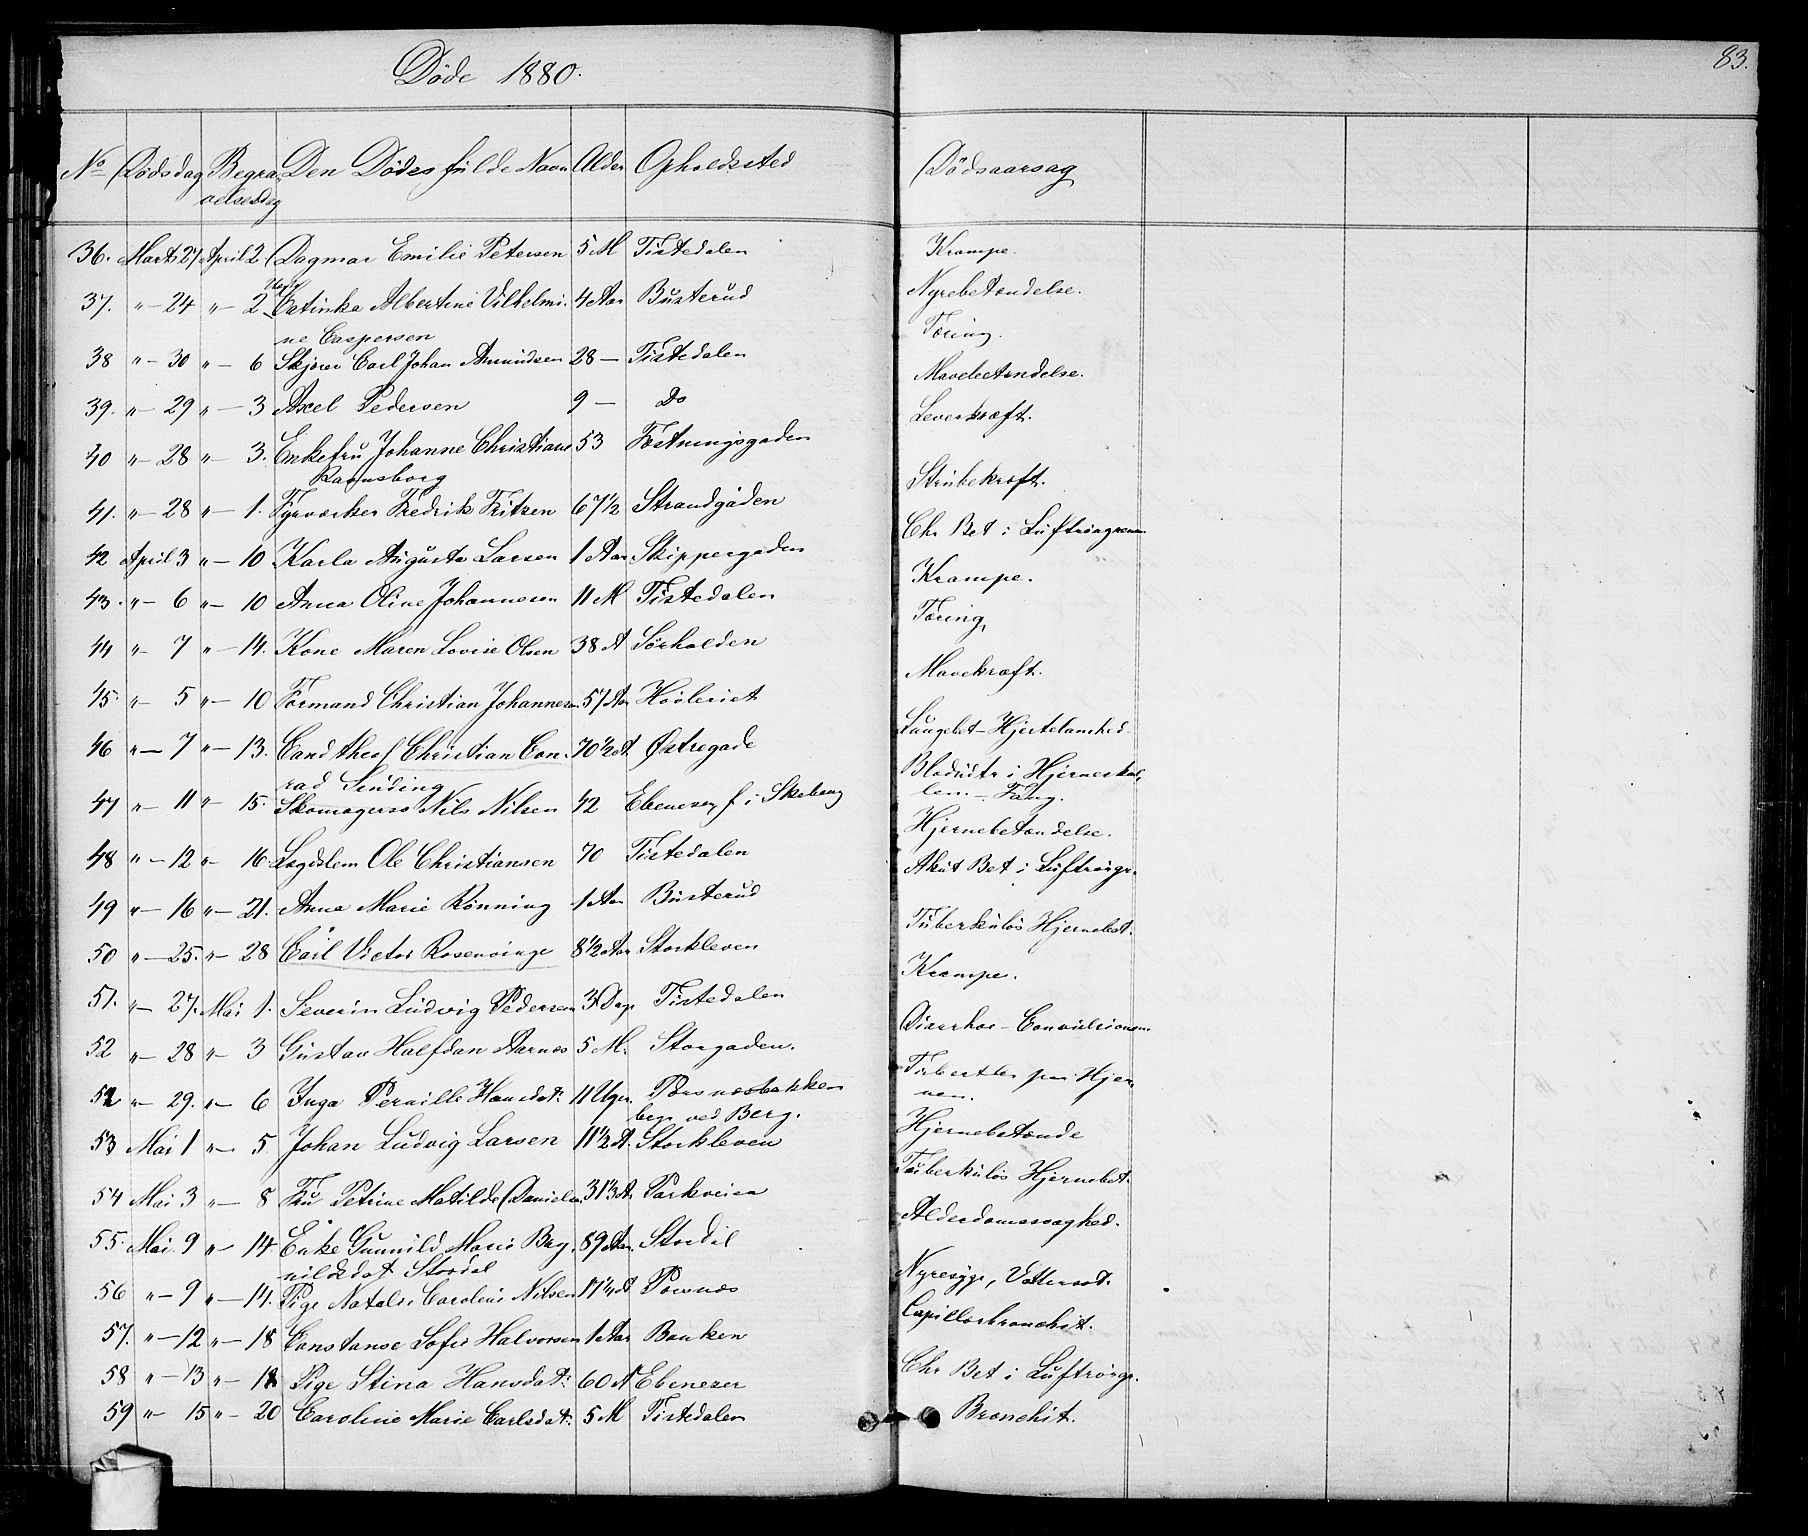 Døde 1880.
83.
No Dødsdag Begravelsesdag Den Dødes fulde Navn Alder Opholdsted Dødsaarsag
36. Marts 27 April 2 Dagmar Emilie Petersen 5 M Tistedalen Krampe.
37. " - 24 " - 2 Catinka Albertine Vilhelmi- 4 Aar Busterud Nyrebetændelse.
ne Caspersen
38 " - 30 " - 6 Skjører Carl Johan Amundsen 28 - Tistedalen Tæring.
39. " - 29 " - 3 Axel Pedersen 9 - Do Mavebetændelse.
40 " - 28 " - 3. Enkefru Johanne Christiane 53 Fæstningsgaden Leverkræft.
Ramsborg
41. " - 28 " - 1. Fyrværker Fredrik Fritzen 67 1/2 Strandgaden Strubekræft.
42 April 3 " - 10 Karla Augusta Larsen 1 Aar Skippergaden Chr Bet i Luftrørgrenen
43. " - 6 " - 10 Anna Oline Johannesen 11 M Tistedalen Krampe.
44 " - 7 " - 14. Kone Maren Lovise Olsen 38 A Sørhalden Tæring,
45. " - 5 " - 10 Formand Christian Johannesen 57 Aar Høvleriet Mavekræft.
46 " - 7 " - 13. Cand theol Christian Con- 70 1/2 A. Østregade Lungebet - Hjertelamhed
rad Sinding
47 " - 11 " - 15. Skomagersv Nils Nilsen 42 Ebenezer, f i Skeberg Blodudtr i Hjerneskal-
len - Fang.
48 " - 12 " - 16. Lægdslem Ole Christiansen 70 Tistedalen Hjernebetændelse.
49 " - 16 " - 21. Anna Marie Rønning 1 Aar Busterud Akut Bet i Luftrørgr.
50 " - 25. " - 28 Carl Victor Rosenvinge 8 1/2 Aar Storkleven Tuberkuløs Hjernebet.
51. " - 27. Mai 1. Severin Ludvig Pedersen 3 Dage Tistedalen Krampe.
52 " - 28 " - 3 Gustav Halfdan Aarnes 5 M. Storgaden. Diarrhoe - Convulsionen
52 " - 29. " - 6 Inga Pernille Hansdat: 11 Uger. Porsnesbakken Tuberkler paa Hjer-
ved Berg. nen.
53 Mai 1 " - 5. Johan Ludvig Larsen 11 1/2 A. Storkleven Hjernebetænde
54 Mai 3 " - 8 Fru Petrine Matilde Danielsen 31 1/3 A. Parkveien Tuberkuløs Hjernebet.
55. Mai 9 " - 14 Enke Gunnild Marie Bry- 89 Aar. Stordal Alderdomssvaghed.
nildsdat Stordal
56 " - 9 " - 14. Pige Natalie Caroline Nilsen 17 1/4 A Porsnes Nyresyge, Vattersot.
57. " - 12 " - 18 Constanse Sofie Halvorsen 1 Aar Banken Capillærbronchit.
58 " - 13 " - 18 Pige Stina Hansdat: 60 A Ebenezer Chr Bet i Luftrørgr.
59 " - 15 " - 20 Caroline Marie Carlsdat. 5 M Tistedalen Bronchit.